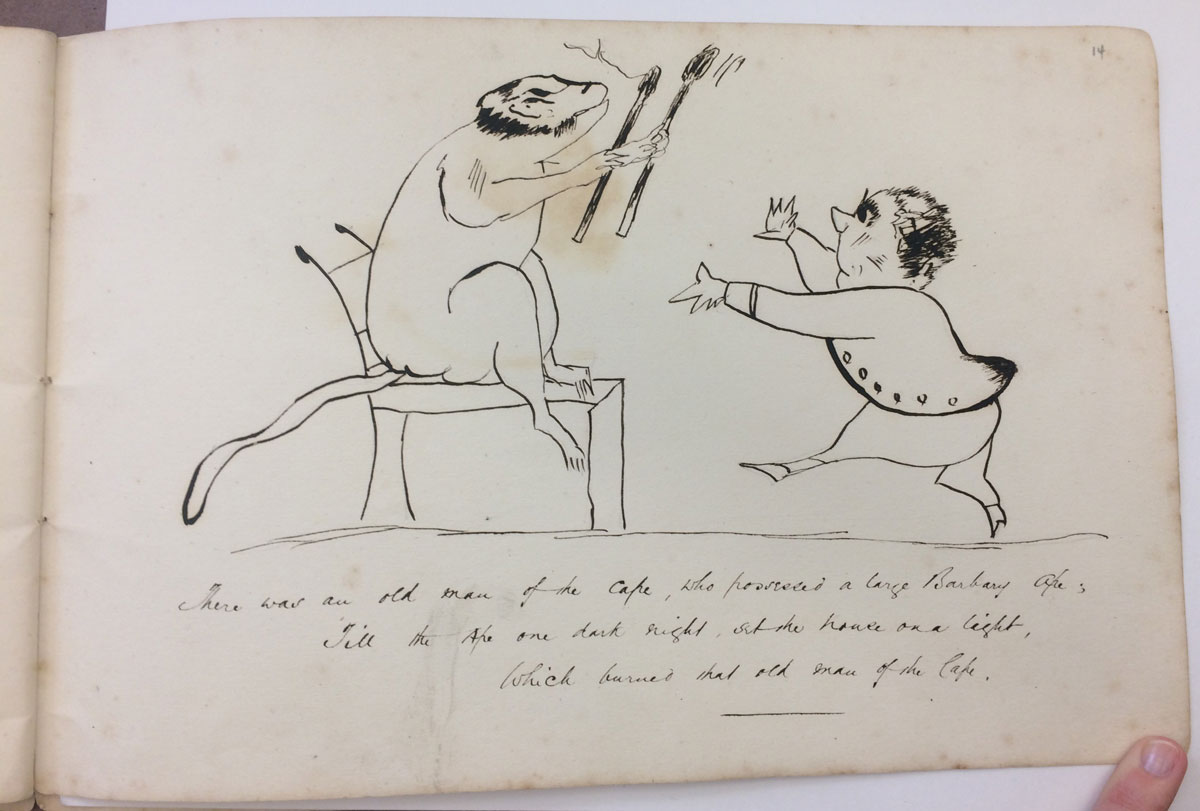 14
There was an old man of the Cape, who possessed a large Barbary Ape;
Till the Ape one dark night, set the house on a light,
Which burned that old man of the Cape.